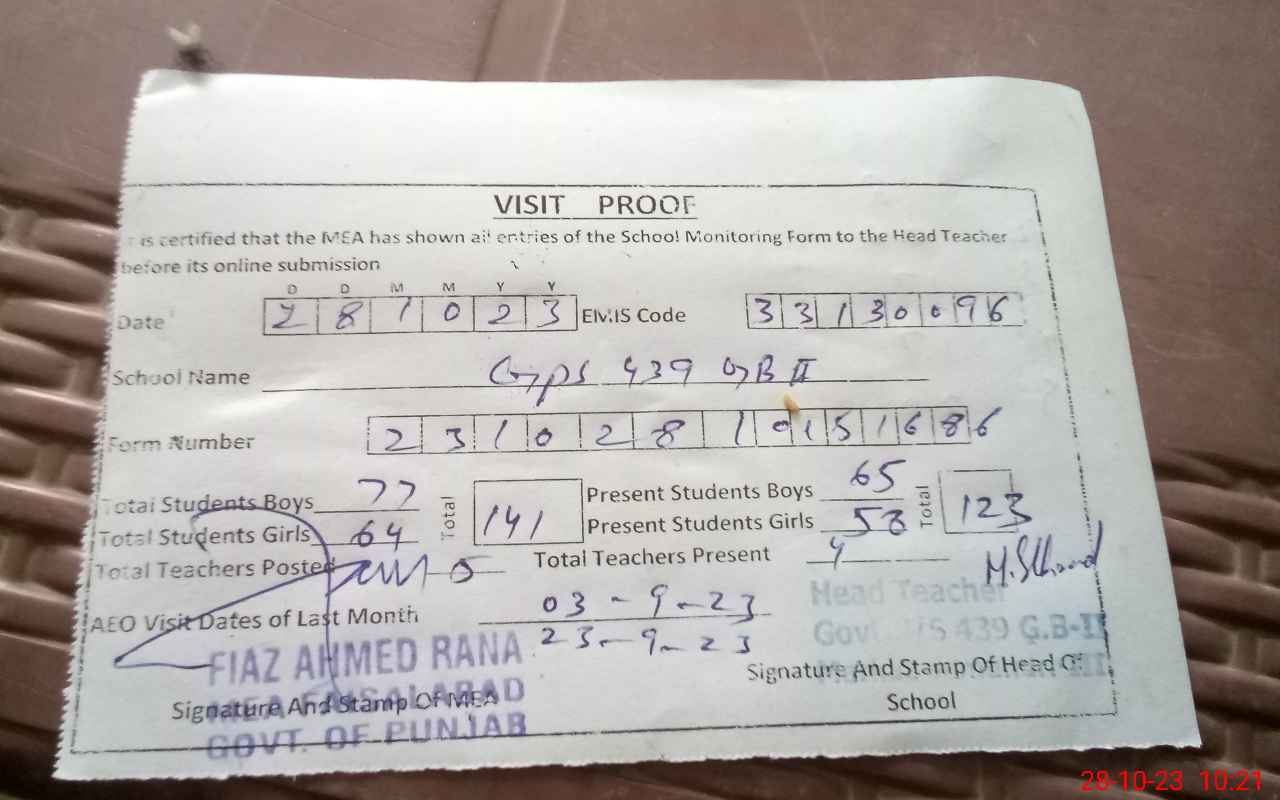 VISIT PROOF
is certified that the MEA has shown all entries of the School Monitoring Form to the Head Teacher
before its online submission
D D M M Y Y
Date 2 8 1 0 2 3 EMIS Code 3 3 1 3 0 0 9 6
School Name GPS 439 GB II
Form Number 2 3 1 0 2 8 1 0 1 5 1 6 8 6
Total Students Boys 77 Total 141 Present Students Boys 65 Total 123
Total Students Girls 64 Present Students Girls 58
Total Teachers Posted 5 Total Teachers Present 4
AEO Visit Dates of Last Month 03-9-23
23-9-23
Head Teacher
439 G.B-II
FIAZ AHMED RANA
MEA FAISALABAD
GOVT. OF PUNJAB
Signature And Stamp Of MEA
Signature And Stamp Of Head Of
School
28-10-23 10:21